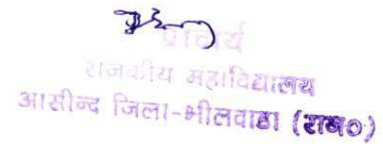 प्राचार्य
राजकीय महाविद्यालय
आसीन्द जिला-भीलवाडा (राज०)